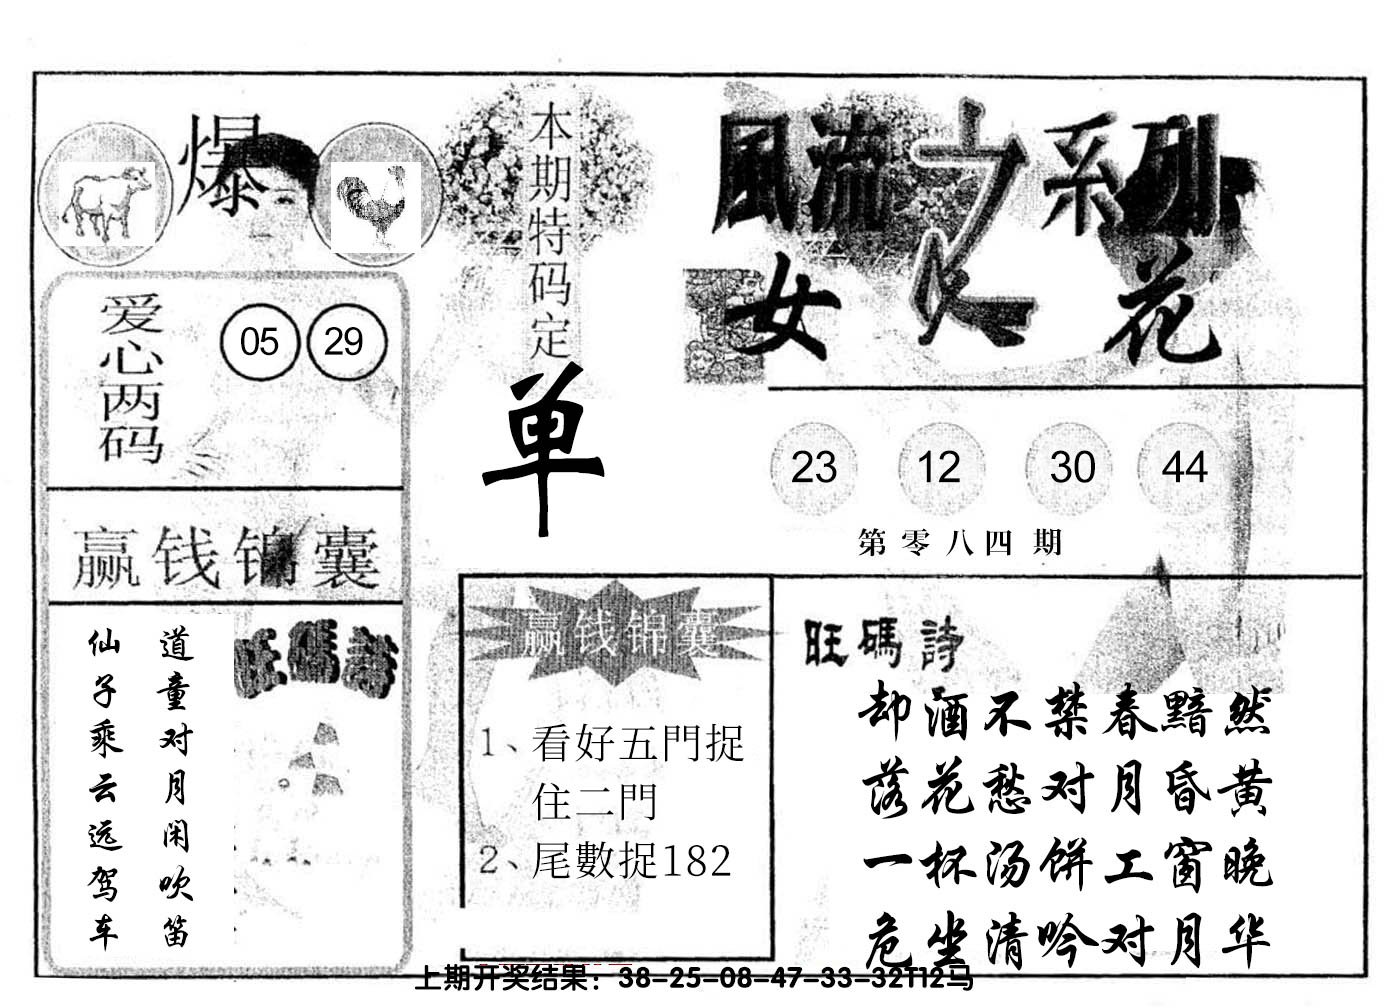 爆
本期特码定
单
風流之系列
女人花
爱心两码
05 29
23 12 30 44
第零八四期
赢钱锦囊
道童对月闲吹笛
仙子乘云远驾车
旺碼詩
赢钱锦囊
1、看好五門捉
住二門
2、尾數捉182
旺碼詩
却酒不禁春黯然
落花愁对月昏黄
一杯汤饼工窗晚
危坐清吟对月华
上期开奖结果：38-25-08-47-33-32T12马